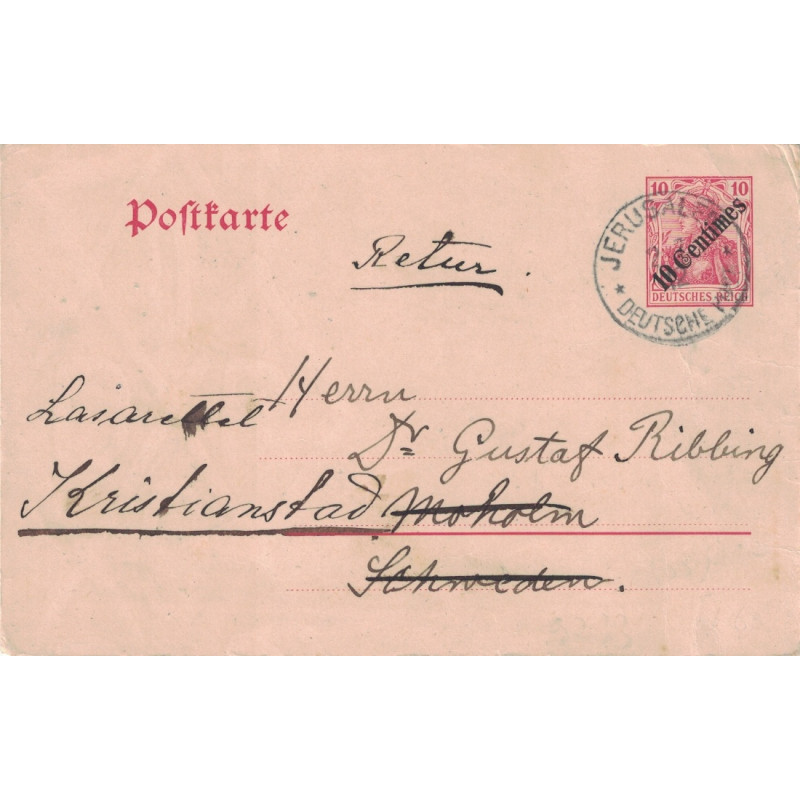 Postkarte
10 10
10 Centimes
DEUTSCHES REICH
JERUSALEM
* *
DEUTSCHE
Retur.
Herrn
Lasarettet
Dr Gustaf Ribbing
Kristianstad Moholm
Schweden.